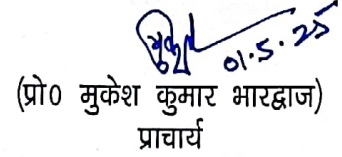 01.5.25
(प्रो0 मुकेश कुमार भारद्वाज)
प्राचार्य